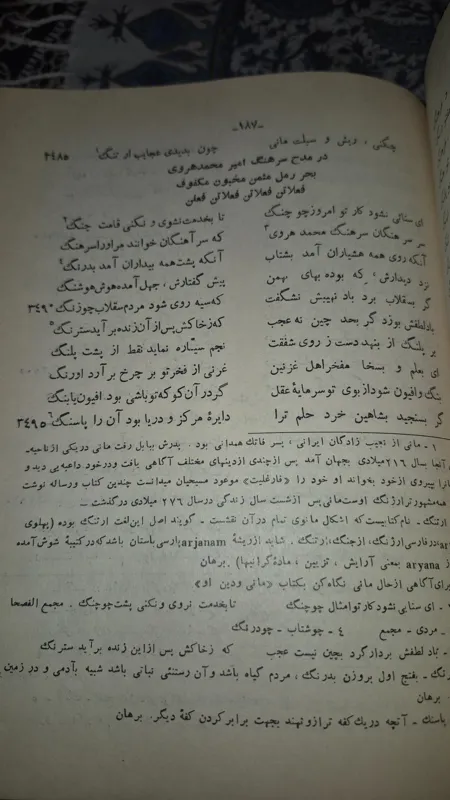 -۱۸۷-
چنگی، ریش و سبلت مانی چون بدیدی عجایب ارتنگ۱ ۳۴۸۵
در مدح سرهنگ امیر محمد هروی
بحر رمل مثمن مخبون مکفوف
فعلاتن فعلاتن فعلاتن فعلن
ای سنائی نشود کار تو امروز چو چنگ تا بخدمت نشوی و نکنی قامت چنگ۲
سر سرهنگان سرهنگ محمد هروی۳ که سرآهنگان خوانند مر او را سرهنگ
آنکه روی همه هشیاران آمد بشتاب آنکه پشت همه بیداران آمد بدرنگ۴
نزد دیدارش، که بوده بهای بهمن پیش گفتارش، جهل آمده هوش هوشنگ
گر بسقلاب برد باد نهیبش نشگفت که سیه روی شود مردم سقلاب چو زنگ ۳۴۹۰
باد لطفش بوزد گر بحد چین نه عجب که ز خاکش پس از آن زنده برآید سترنگ۵
بر پلنگ از بنهد دست ز روی شفقت نجم سیاره نماید نقط از پشت پلنگ
ای بعلم و بسخا مفخر اهل غزنین غرنی از فخر تو بر چرخ برآرد اورنگ
بنگ و افیون شود از بوی تو سرمایهٔ عقل گر در آن کو که تو باشی بود افیون یا بنگ
گر بسنجید بشاهین خرد حلم ترا دایرهٔ مرکز و دریا بود آن را پاسنگ۶ ۳۴۹۵
۱ - مانی از نجیب زادگان ایرانی، پسر فاتك همدانی بود. پدرش ببابل رفت مانی در یکی از ناحیه
آنجا سال ۲۱۶ میلادی بجهان آمد پس از چندی از دینهای مختلف آگاهی یافت و در خود داعیه‌یی دید و
را پیروی از خود بخواند او خود را «فارغلیت» موعود مسیحیان میدانست چندین کتاب و رساله نوشت
همه مشهورتر ارژنگ اوست مانی پس از شصت سال زندگی در سال ۲۷۶ میلادی درگذشت -
ارتنگ - نام کتابیست که اشکال مانوی تمام در آن نقشست - گویند اصل این لغت ارتنگ بوده (پهلوی
در فارسی ارژنگ، ارجنگ، ارتنگ. شاید از ریشهٔ arjanam پارسی باستان باشد که در کتیبهٔ شوش آمده
aryana بمعنی آرایش، تزیین، مادهٔ گرانبها). برهان
برای آگاهی از حال مانی نگاه کن بکتاب «مانی و دین او»
- ای سنایی نشود کار تو امثال چو چنگ تا بخدمت نروی و نکنی پشت چو چنگ. مجمع الفصحا
- مردی - مجمع ۴ - چو شتاب - چو درنگ
- باد لطفش بردار گرد بچین نیست عجب که ز خاکش پس از این زنده برآید سترنگ
رنگ - بفتح اول بروزن بدرنگ، مردم گیاه باشد و آن رستنئی نباتی باشد شبیه بآدمی و در زمین
- برهان
پاسنگ - آنچه در یك کفه ترازو نهند بجهت برابر کردن کفهٔ دیگر. برهان